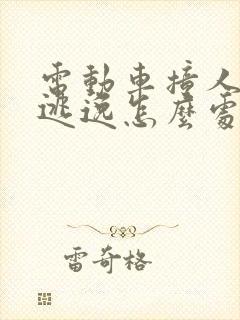 電動車撞人
逃逸怎麼處
雷奇格